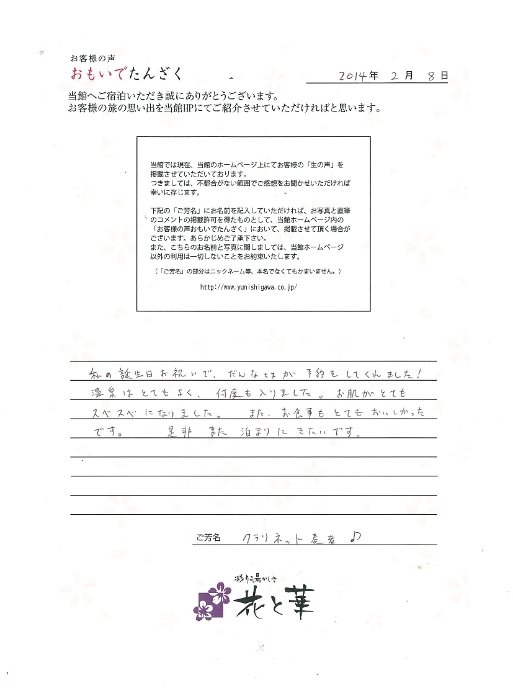 お客様の声
おもいでたんざく
2014年 2月 8日
当館へご宿泊いただき誠にありがとうございます。
お客様の旅の思い出を当館HPにてご紹介させていただければと思います。
当館では現在、当館のホームページ上にてお客様の「生の声」を
掲載させていただいております。
つきましては、不都合がない範囲でご感想をお聞かせいただければ
幸いに存じます。
下記の「ご芳名」にお名前を記入していただければ、お写真と直筆
のコメントの掲載許可を得たものとして、当館ホームページ内の
「お客様の声おもいでたんざく」において、掲載させて頂く場合が
ございます。あらかじめご了承下さい。
また、こちらのお名前と写真に関しましては、当館ホームページ
以外の利用は一切しないことをお約束いたします。
（「ご芳名」の部分はニックネーム等、本名でなくてもかまいません。）
http://www.yunishigawa.co.jp/
私の誕生日お祝いで、だんなさまが予約をしてくれました!
温泉はとてもよく、何度も入りました。お肌がとても
スベスベになりました。 また、お食事もとてもおいしかった
です。 是非また泊まりにきたいです。
ご芳名 クラリネット奏者♪
花と華